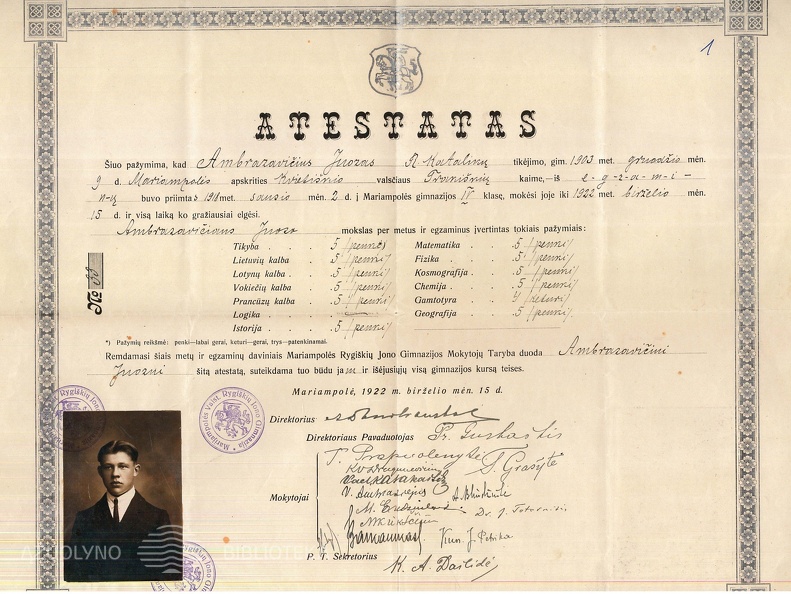 1
ATESTATAS
Šiuo pažymima, kad Ambrazavičius Juozas R. Katalikų tikėjimo, gim. 1903 met. gruodžio mėn.
9 d. Mariampolės apskrities Kvietiškio valsčiaus Trakiškių kaime,—iš e-g-z-a-m-i-
n-ų buvo priimta 1919 met. sausio mėn. 2 d. į Mariampolės gimnazijos IV klasę, mokėsi joje iki 1922 met. birželio mėn.
15 d. ir visą laiką ko gražiausiai elgėsi.
Ambrazavičiaus Juozo mokslas per metus ir egzaminus įvertintas tokiais pažymiais:
Tikyba . . . 5 (penki) Matematika . . . 5 (penki)
Lietuvių kalba . . 5 (penki) Fizika . . . 5 (penki)
Lotynų kalba . . 5 (penki) Kosmografija . . 5 (penki)
Vokiečių kalba . . 5 (penki) Chemija . . . 5 (penki)
Prancūzų kalba . . 5 (penki) Gamtotyra . . 4 (keturi)
Logika . . . Geografija . . 5 (penki)
Istorija . . . 5 (penki)
№
*) Pažymių reikšmė: penki—labai gerai, keturi—gerai, trys—patenkinamai.
Remdamasi šiais metų ir egzaminų daviniais Mariampolės Rygiškių Jono Gimnazijos Mokytojų Taryba duoda Ambrazavičiui
Juozui šitą atestatą, suteikdama tuo būdu jam ir išėjusiųjų visą gimnazijos kursą teises.
Mariampolė, 1922 m. birželio mėn. 15 d.
Direktorius
Direktoriaus Pavaduotojas Pr. Gustaitis
Mokytojai
S. Grašytė
J. Petrika
P. T. Sekretorius K. A. Dailidė
Marijampolės Valst. Rygiškių Jono Gimnazija
Rygiškių Jono
AŽUOLYNO BIBLIOTEKA